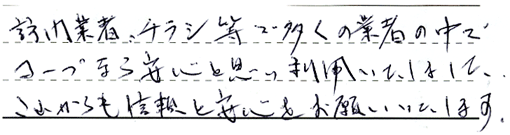 訪問業者、チラシ等で多くの業者の中で
コープなら安心と思い利用いたしました。
これからも信頼と安心をお願いいたします。